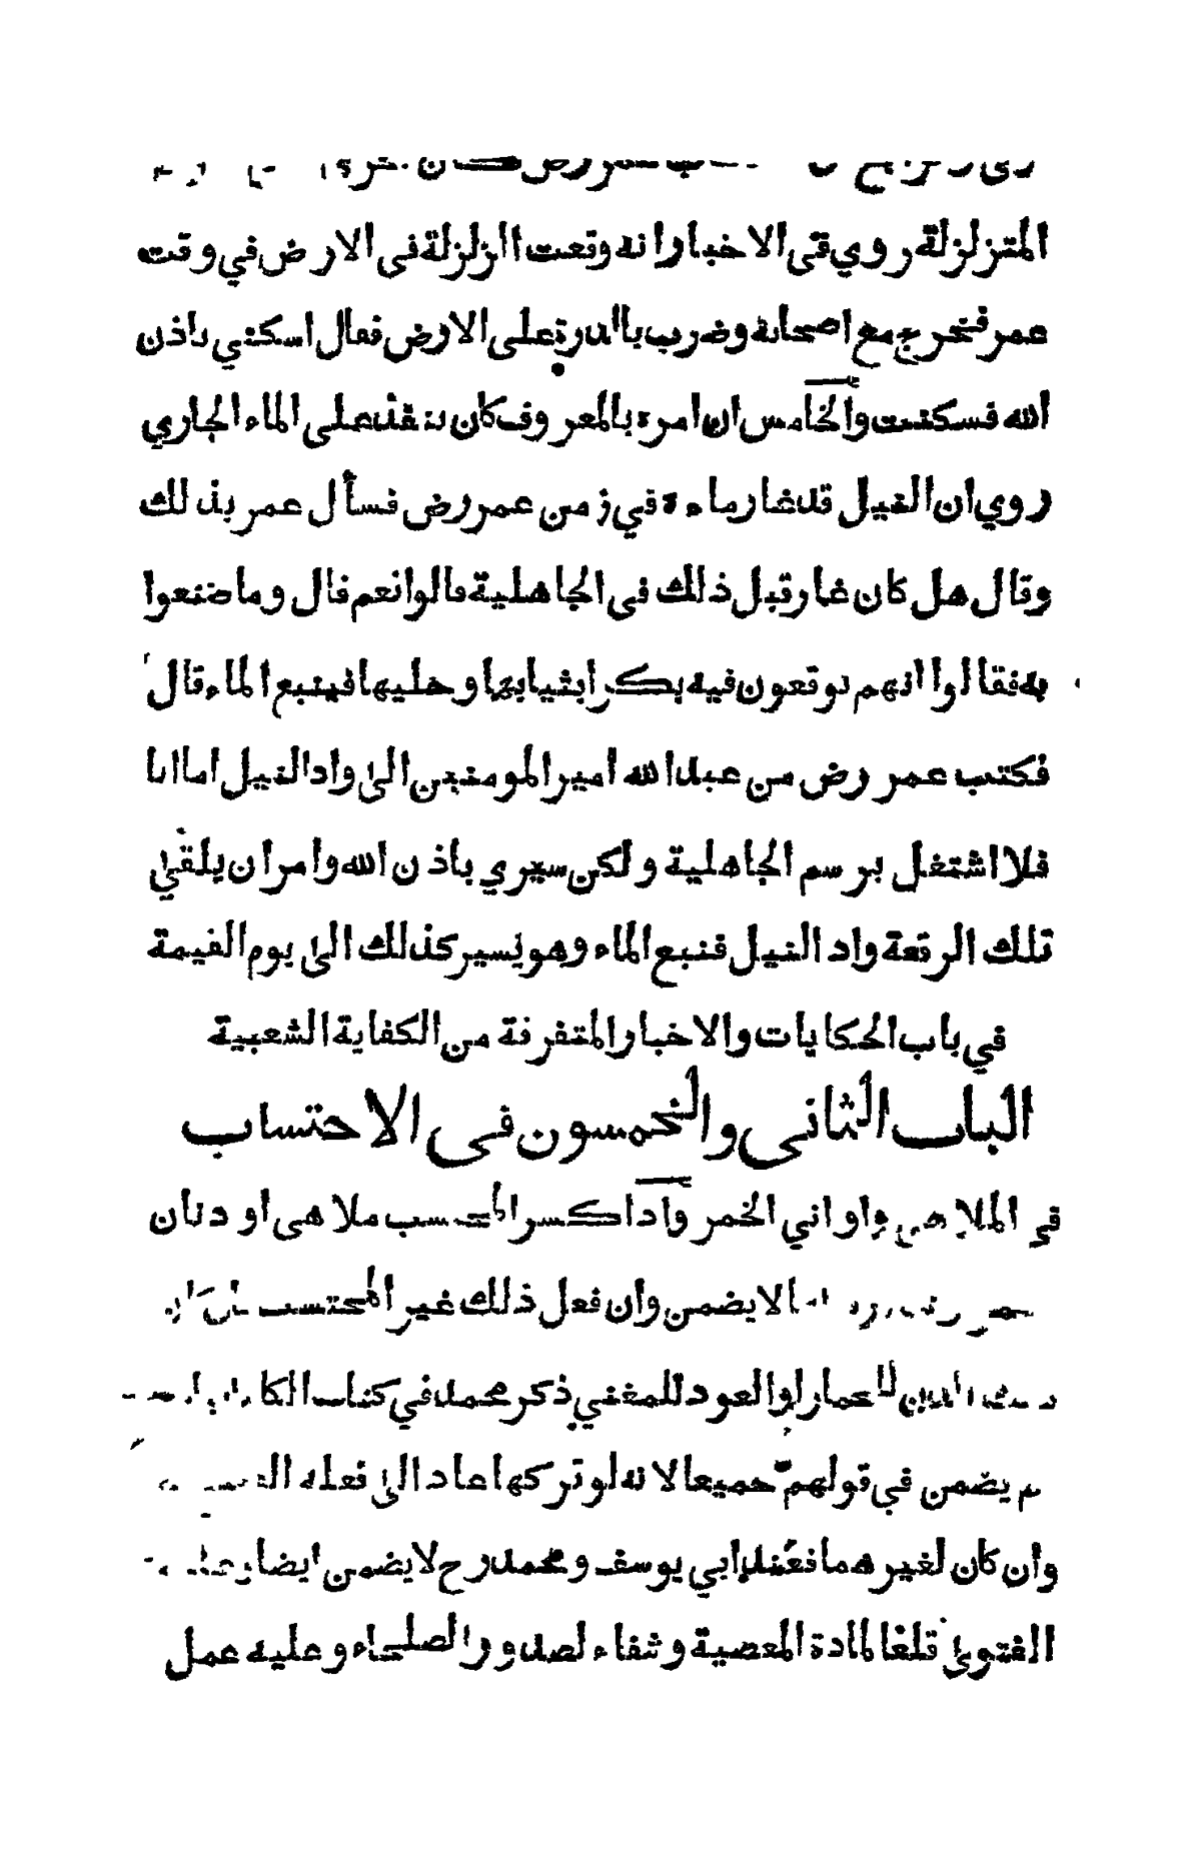 المتزلزلة روي في الاخبار انه وقعت الزلزلة فى الارض في وقت
عمر فخرج مع اصحابه وضرب بالدرة على الارض فقال اسكني باذن
الله فسكنت والخامس ان امره بالمعروف كان ينفذ على الماء الجاري
روي ان النيل قد غار ماءه في زمن عمر رض فسأل عمر بذلك
وقال هل كان غار قبل ذلك فى الجاهلية قالوا نعم قال وما صنعوا
به فقالوا انهم يوقعون فيه بكرا بثيابها وحليها فينبع الماء قال
فكتب عمر رض من عبد الله امير المومنين الى واد النيل اما انا
فلا اشتغل برسم الجاهلية ولكن سيري باذن الله وامر ان يلقى
تلك الرقعة واد النيل فنبع الماء وهو يسير كذلك الى يوم القيمة
في باب الحكايات والاخبار المتفرقة من الكفاية الشعبية
الباب الثانى والخمسون فى الاحتساب
فى الملاهي واواني الخمر واذا كسر المحتسب ملاهى او دنان
لا يضمن وان فعل ذلك غير المحتسب
للخمار او العود للمغني ذكر محمد في كتاب
يضمن في قولهم جميعا لانه لو تركها عاد الى فعله
وان كان لغيرهما فعند ابي يوسف ومحمد رح لا يضمن ايضا وعليه
الفتوى قلعا لمادة المعصية وشفاء لصدور الصلحاء وعليه عمل